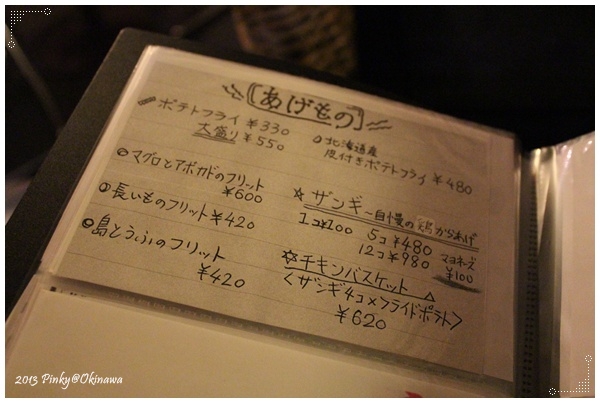 あげもの
ポテトフライ ¥330
大盛り ¥550
北海道産
皮付きポテトフライ ¥480
マグロとアボカドのフリット
¥600
長いものフリット ¥420
島とうふのフリット
¥420
☆ ザンギ〜自慢の鶏からあげ
1コ¥100 5コ ¥480
12コ ¥980
マヨネーズ
¥100
☆チキンバスケット
〈ザンギ4コ×フライドポテト〉
¥620
2013 Pinky@Okinawa